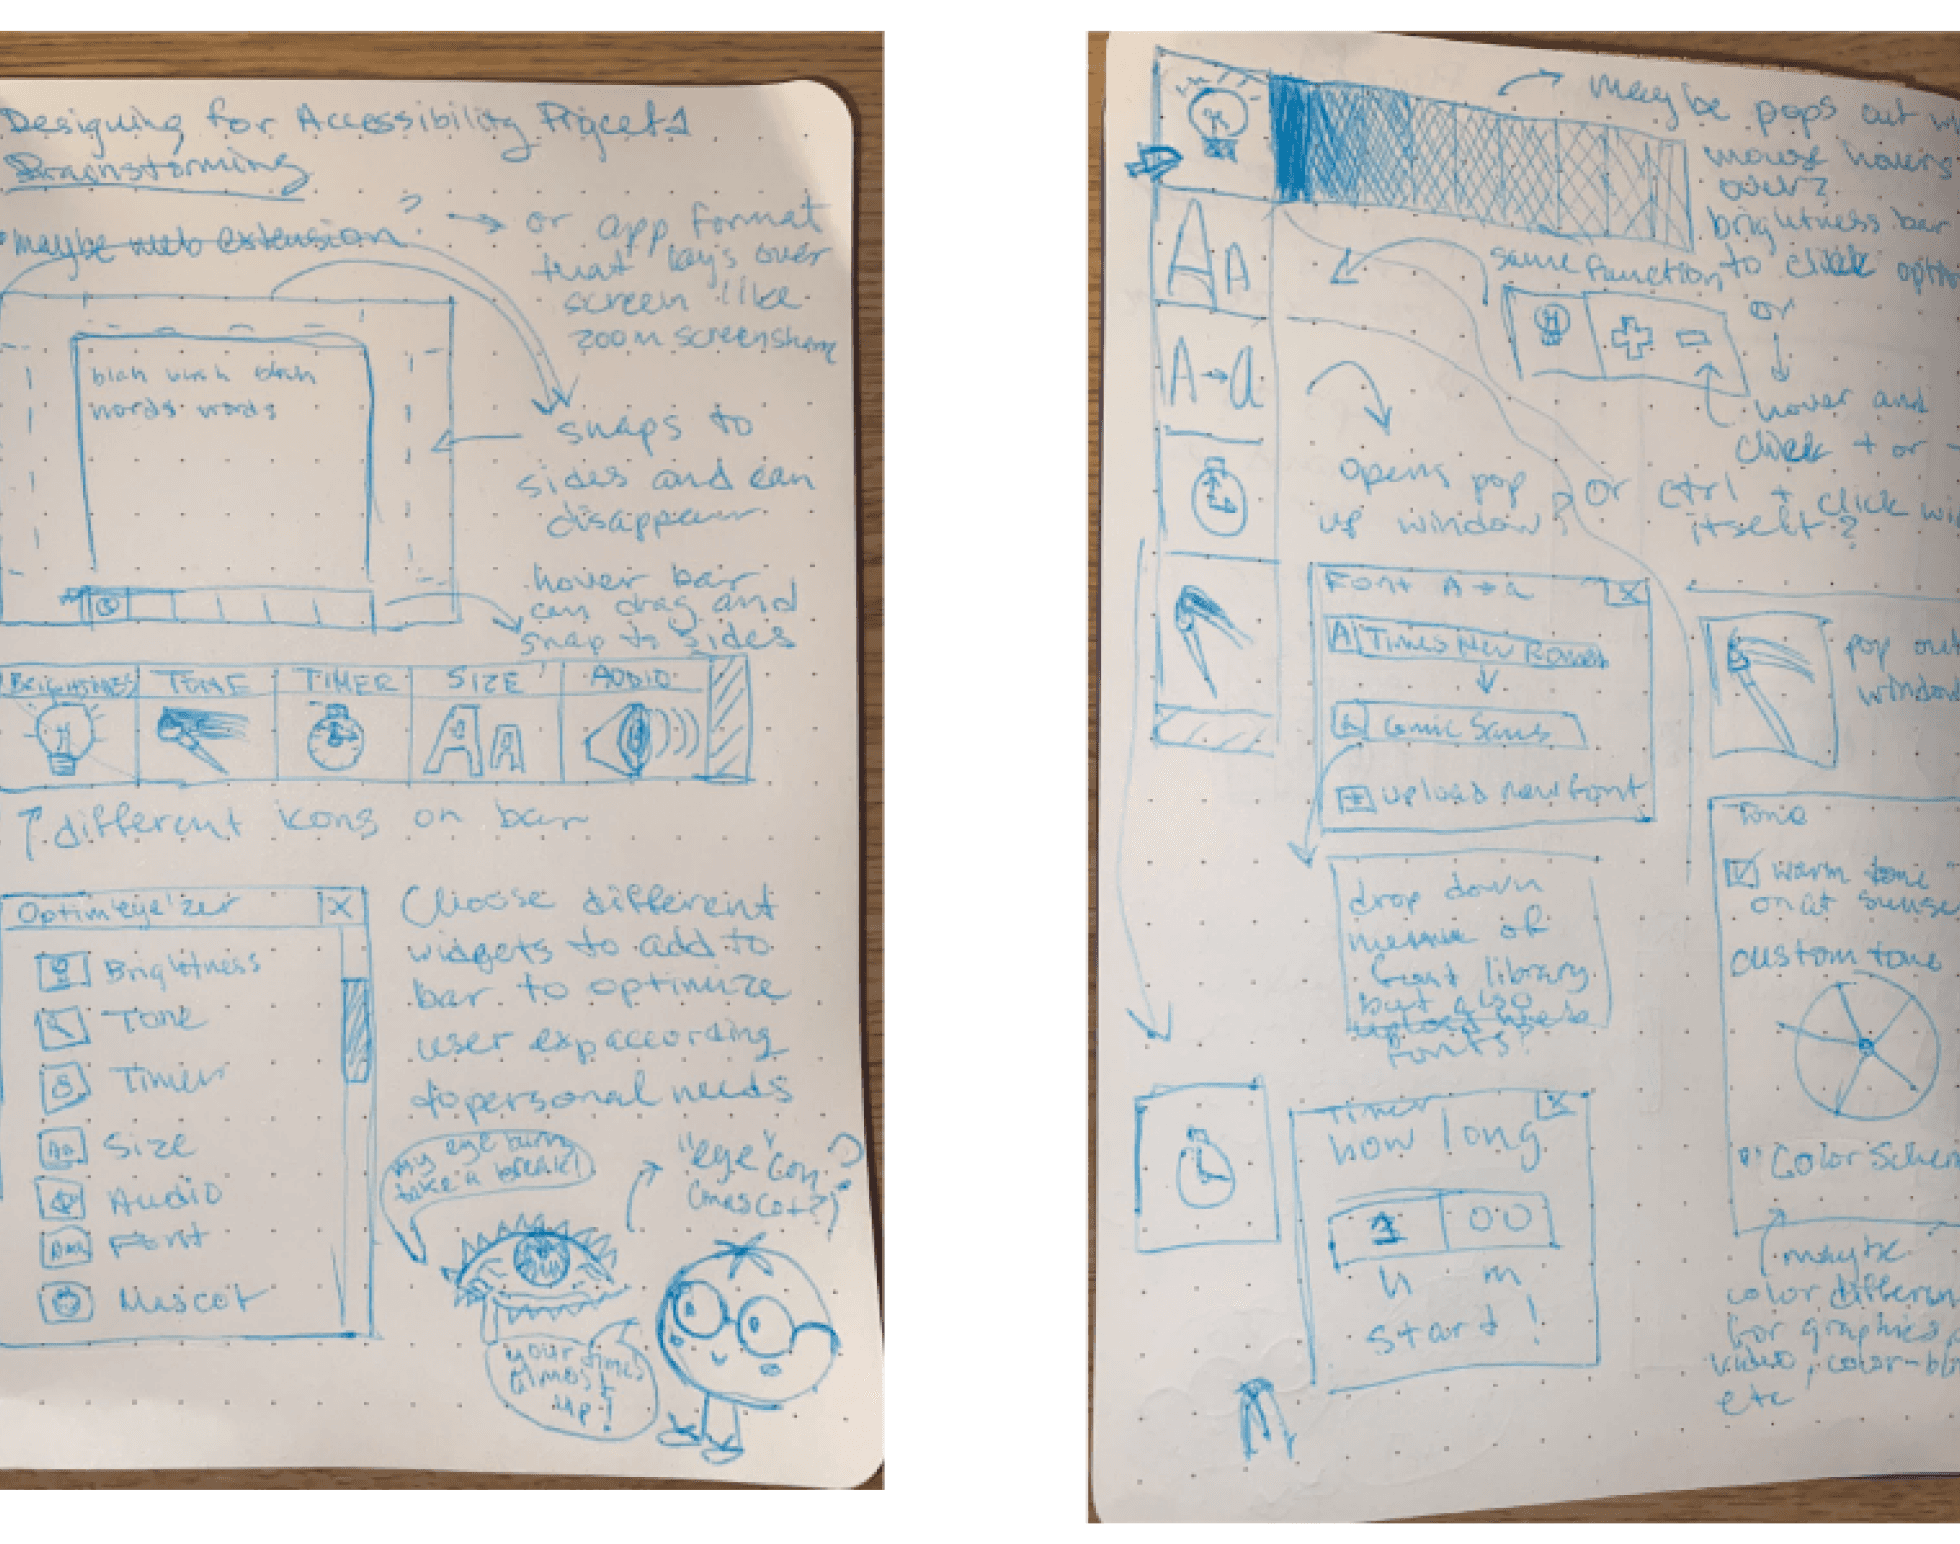 Designing for Accessibility Project 1
Brainstorming
maybe web extension?
or app format
that lays over
screen like
zoom screenshare
blah blah blah
words words
snaps to
sides and can
disappear
hover bar
can drag and
snap to sides
BRIGHTNESS TONE TIMER SIZE AUDIO
different icons on bar
Optim'eye'zer X
Brightness
Tone
Timer
Size
Audio
Font
Mascot
Choose different
widgets to add to
bar to optimize
user exp according
to personal needs
my eye burn
take a break!
"eye"con
(mascot?)
your time's
almost
up!
maybe pops out
mouse hovers
over?
brightness bar
to click
same function
or
hover and
click + or -
AA
A→a
opens pop
up window?
or ctrl + click
itself?
Font A→a X
A Times New Roman
a Comic Sans
+ upload new font
drop down
menu of
font library
but also
upload
fonts?
pop out
window
Tone
warm tone
on at
custom tone
Color
maybe
color
for graphics,
video,
etc
Timer X
how long
1 00
h m
start!